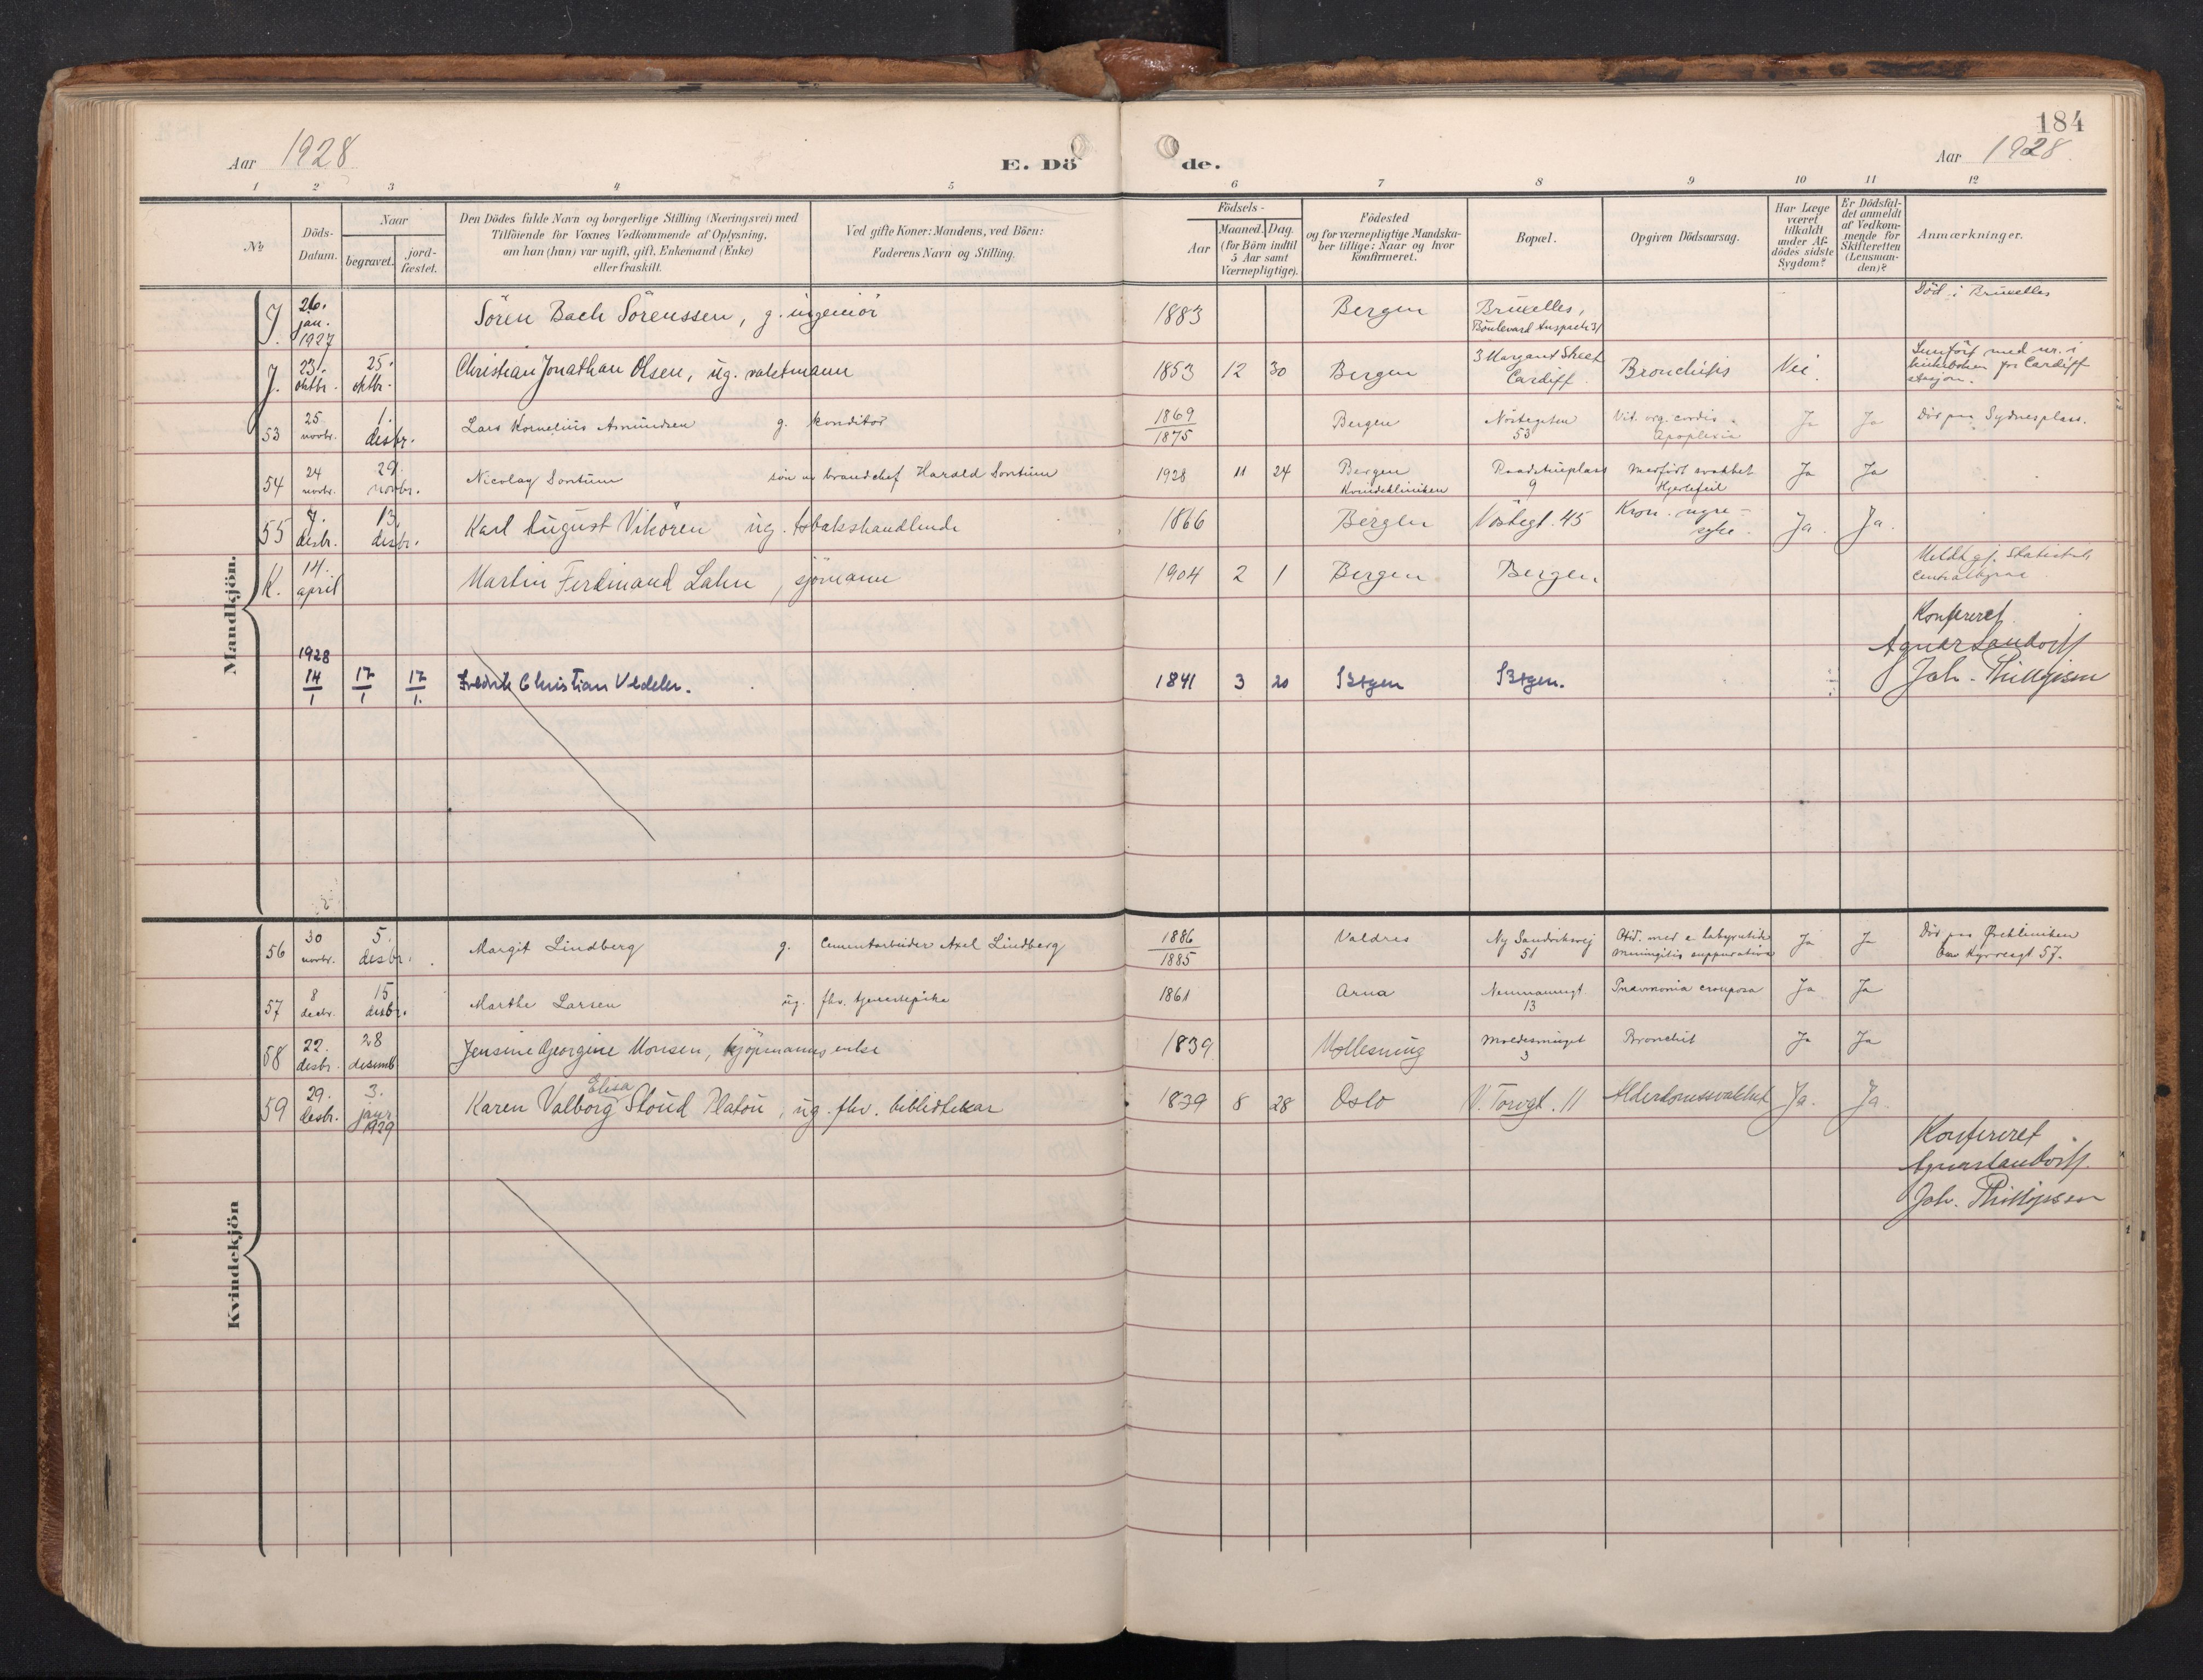 184
Aar 1928
E. Dö de.
Aar 1928.
1 2 3 4 5 6 7 8 9 10 11 12
No
Döds-
Datum.
Naar
begravet.
jord-
fæstet.
Den Dödes fulde Navn og borgerlige Stilling (Næringsvei) med
Tilföiende for Voxnes Vedkommende af Oplysning,
om han (hun) var ugift, gift, Enkemand (Enke)
eller fraskilt.
Ved gifte Koner: Mandens, ved Börn:
Faderens Navn og Stilling.
Födsels-
Aar
Maaned. Dag.
(for Börn indtil
5 Aar samt
Værnepligtige).
Födested
og for værnepligtige Mandska-
ber tillige: Naar og hvor
Konfirmeret.
Bopæl.
Opgiven Dödsaarsag.
Har Læge
været
tilkaldt
under Af-
dödes sidste
Sygdom?
Er Dödsfal-
det anmeldt
af Vedkom-
mende for
Skifteretten
(Lensman-
den)?
Anmærkninger.
Mandkjön.
J. 26. jan. 1927 Sören Bach Sörenssen, g. ingeniör 1883 Bergen Bruxelles, Boulevard Anspach 31 Död i Bruxelles
J. 23. oktbr. 25. oktbr. Christian Jonathan Olsen, ug. vaktmann 1853 12 30 Bergen 3 Margaret Street Cardiff. Bronchitis Nei. med nr. i kirkeboken for Cardiff stasjon.
53 25 novbr. 1. desbr. Lars Kornelius Asmundsen g. konditor 1869 1875 Bergen Nöstegaten 53 Vit. org. cordis. Apoplexia Ja Ja Död paa Sydnesplass.
54 24 novbr. 29. novbr. Nicolay Sontum sön av brandchef Harald Sontum 1928 11 24 Bergen Kvindekliniken Raadstueplass 9 Medfört svakhet Hjertefeil Ja Ja
55 7. desbr. 13. desbr. Karl August Vikören ug. tobakshandlende 1866 Bergen 45 Kron. nyre-syke. Ja. Ja.
K. 14. april Martin Ferdinand Lahn, sjömann 1904 2 1 Bergen Bergen Meldt gj. Statistisk Centralbyraa
Konfereret
Agnar Sandorff
Joh. Phillipsen
1928 14/1 17/1 17/1. Fredrik Christian Vedeler. 1841 3 20 Bergen Bergen.
Kvindekjön
56 30 novbr. 5. desbr. Margit Lindberg g. Cementarbeider Axel Lindberg 1886 1885 Valdres Ny Sandviksvej 51 Otid. med e. labyrutitis meningitis suppurativa Ja Ja Död paa Ørekliniken Kyrresgt 57.
57 8 decbr. 15 desbr. Marthe Larsen ug. fhv. tjenestepike 1861 Arna Neumannsgt. 13 Pneumonia crouposa Ja Ja
58 22. desbr. 28 desemb Jensine Georgine Monsen, kjöpmanns enke 1839 3 Bronchit Ja Ja
59 29. desbr. 3. janr. 1929 Karen Valborg Elisa Stoud Platou, ug. fhv. bibliotekar 1839 8 28 Oslo V. Torvgt. 11 Alderdomssvakhet Ja. Ja.
Konfereret
Agnar Sandorff.
Joh. Phillipsen